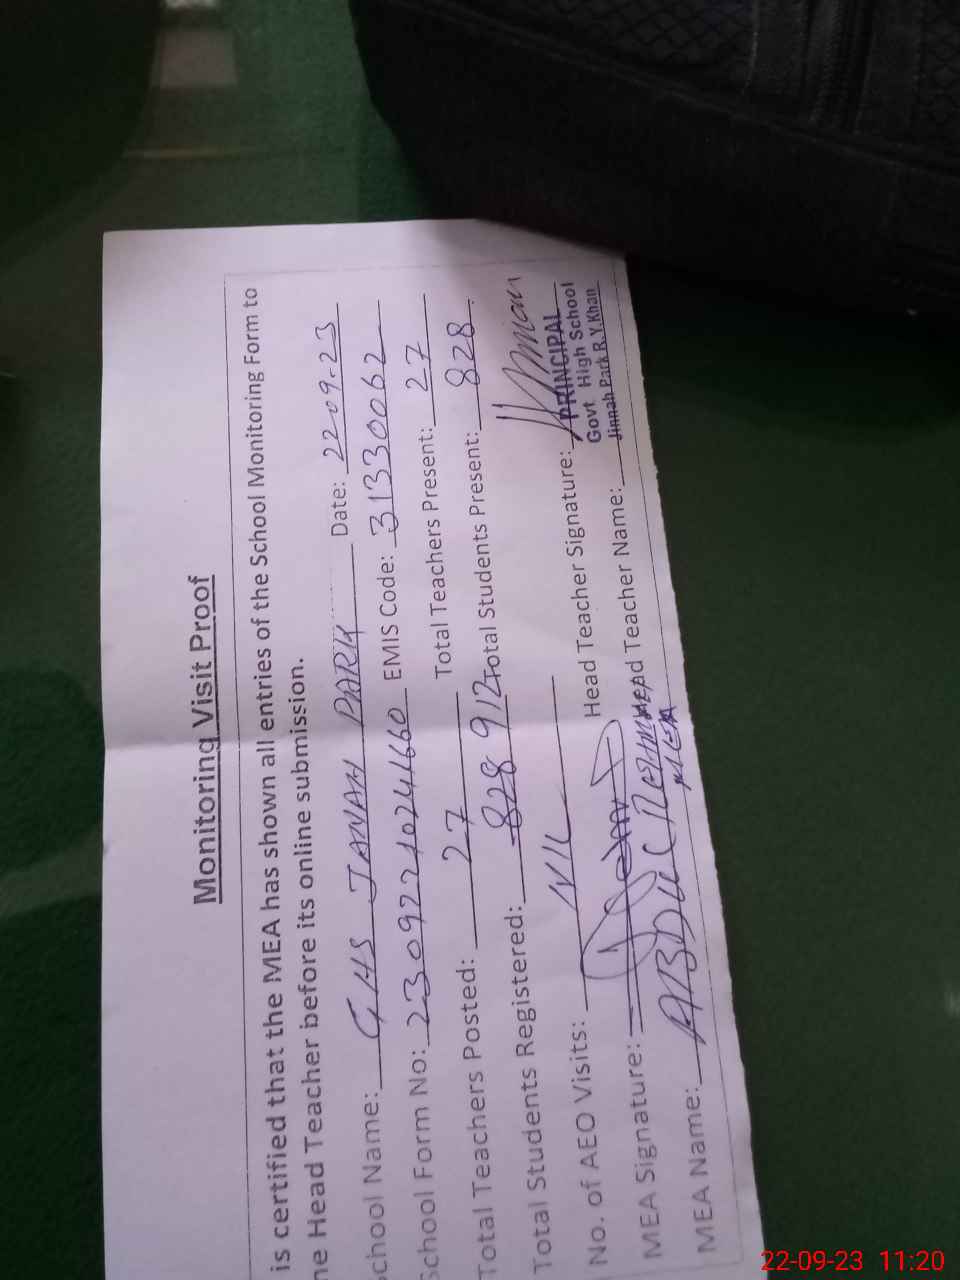 Monitoring Visit Proof
is certified that the MEA has shown all entries of the School Monitoring Form to
he Head Teacher before its online submission.
School Name: GHS JANAH PARK Date: 22-09-23
School Form No: 23092210241660 EMIS Code: 31330062
Total Teachers Posted: 27 Total Teachers Present: 27
Total Students Registered: 828 912 Total Students Present: 828
No. of AEO Visits: NIL
MEA Signature: Head Teacher Signature:
PRINCIPAL
Govt High School
Jinnah Park R.Y.Khan
MEA Name: ABDUL REHMAN Head Teacher Name:
MEA
22-09-23 11:20